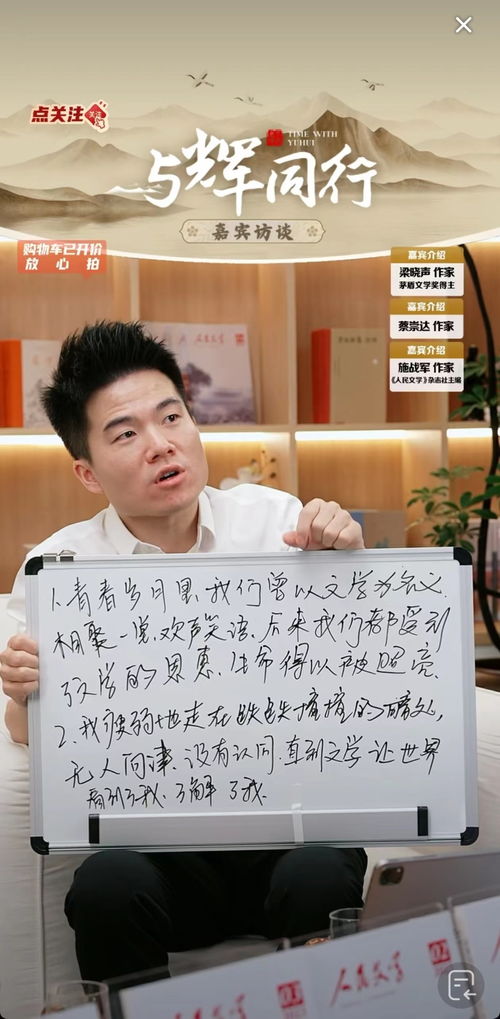 点关注
关注
TIME WITH
YUHUI
与辉同行
嘉宾访谈
购物车已开价
放心拍
嘉宾介绍
梁晓声 作家
茅盾文学奖得主
嘉宾介绍
蔡崇达 作家
嘉宾介绍
施战军 作家
《人民文学》杂志社主编
人民文学
1.青春岁月里,我们曾以文学为名义.
相聚一堂.欢声笑语.后来我们都受到
了文学的恩惠.生命得以被照亮.
2.我疲弱地走在跌跌撞撞的暗处,
无人问津.没有认同.直到文学让世界
看到了我.了解了我.
人民文学
03
人民文学
02